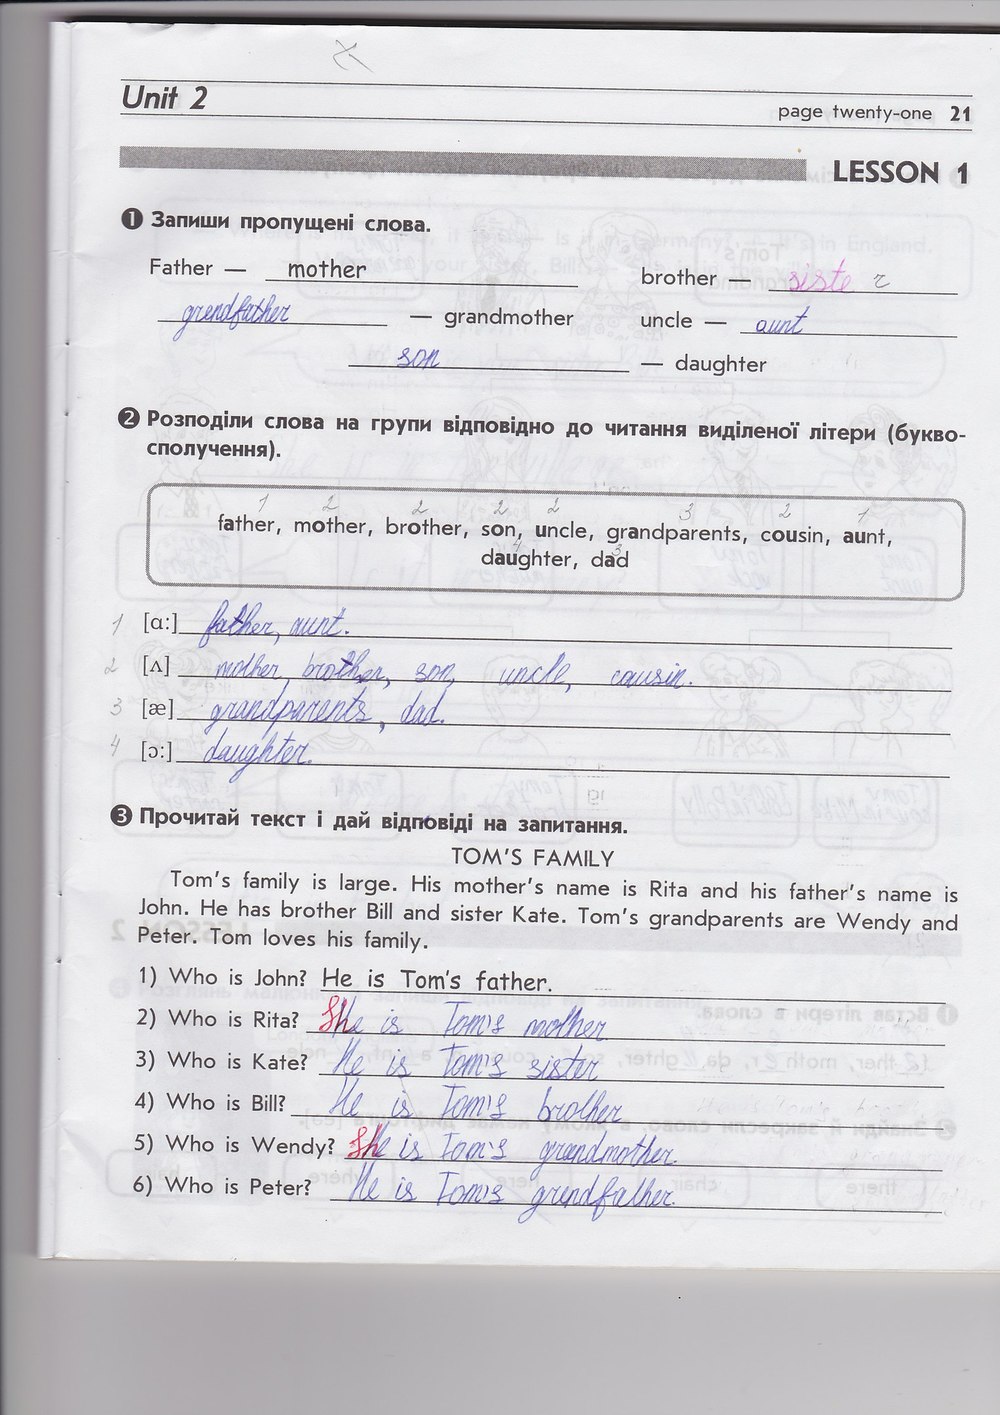 Unit 2
page twenty-one 21
LESSON 1
❶ Запиши пропущені слова.
Father — mother brother — sister
grendfather — grandmother uncle — aunt
son — daughter
❷ Розподіли слова на групи відповідно до читання виділеної літери (букво-
сполучення).
1 2 2 2 2 3 2 1
father, mother, brother, son, uncle, grandparents, cousin, aunt,
4 3
daughter, dad
1 [ɑ:] father, aunt.
2 [ʌ] mother, brother, son, uncle, cousin.
3 [æ] grandparents, dad.
4 [ɔ:] daughter.
❸ Прочитай текст і дай відповіді на запитання.
TOM'S FAMILY
Tom's family is large. His mother's name is Rita and his father's name is
John. He has brother Bill and sister Kate. Tom's grandparents are Wendy and
Peter. Tom loves his family.
1) Who is John? He is Tom's father.
2) Who is Rita? She is Tom's mother
3) Who is Kate? He is Tom's sister
4) Who is Bill? He is Tom's brother
5) Who is Wendy? She is Tom's grandmother.
6) Who is Peter? He is Tom's grendfather.